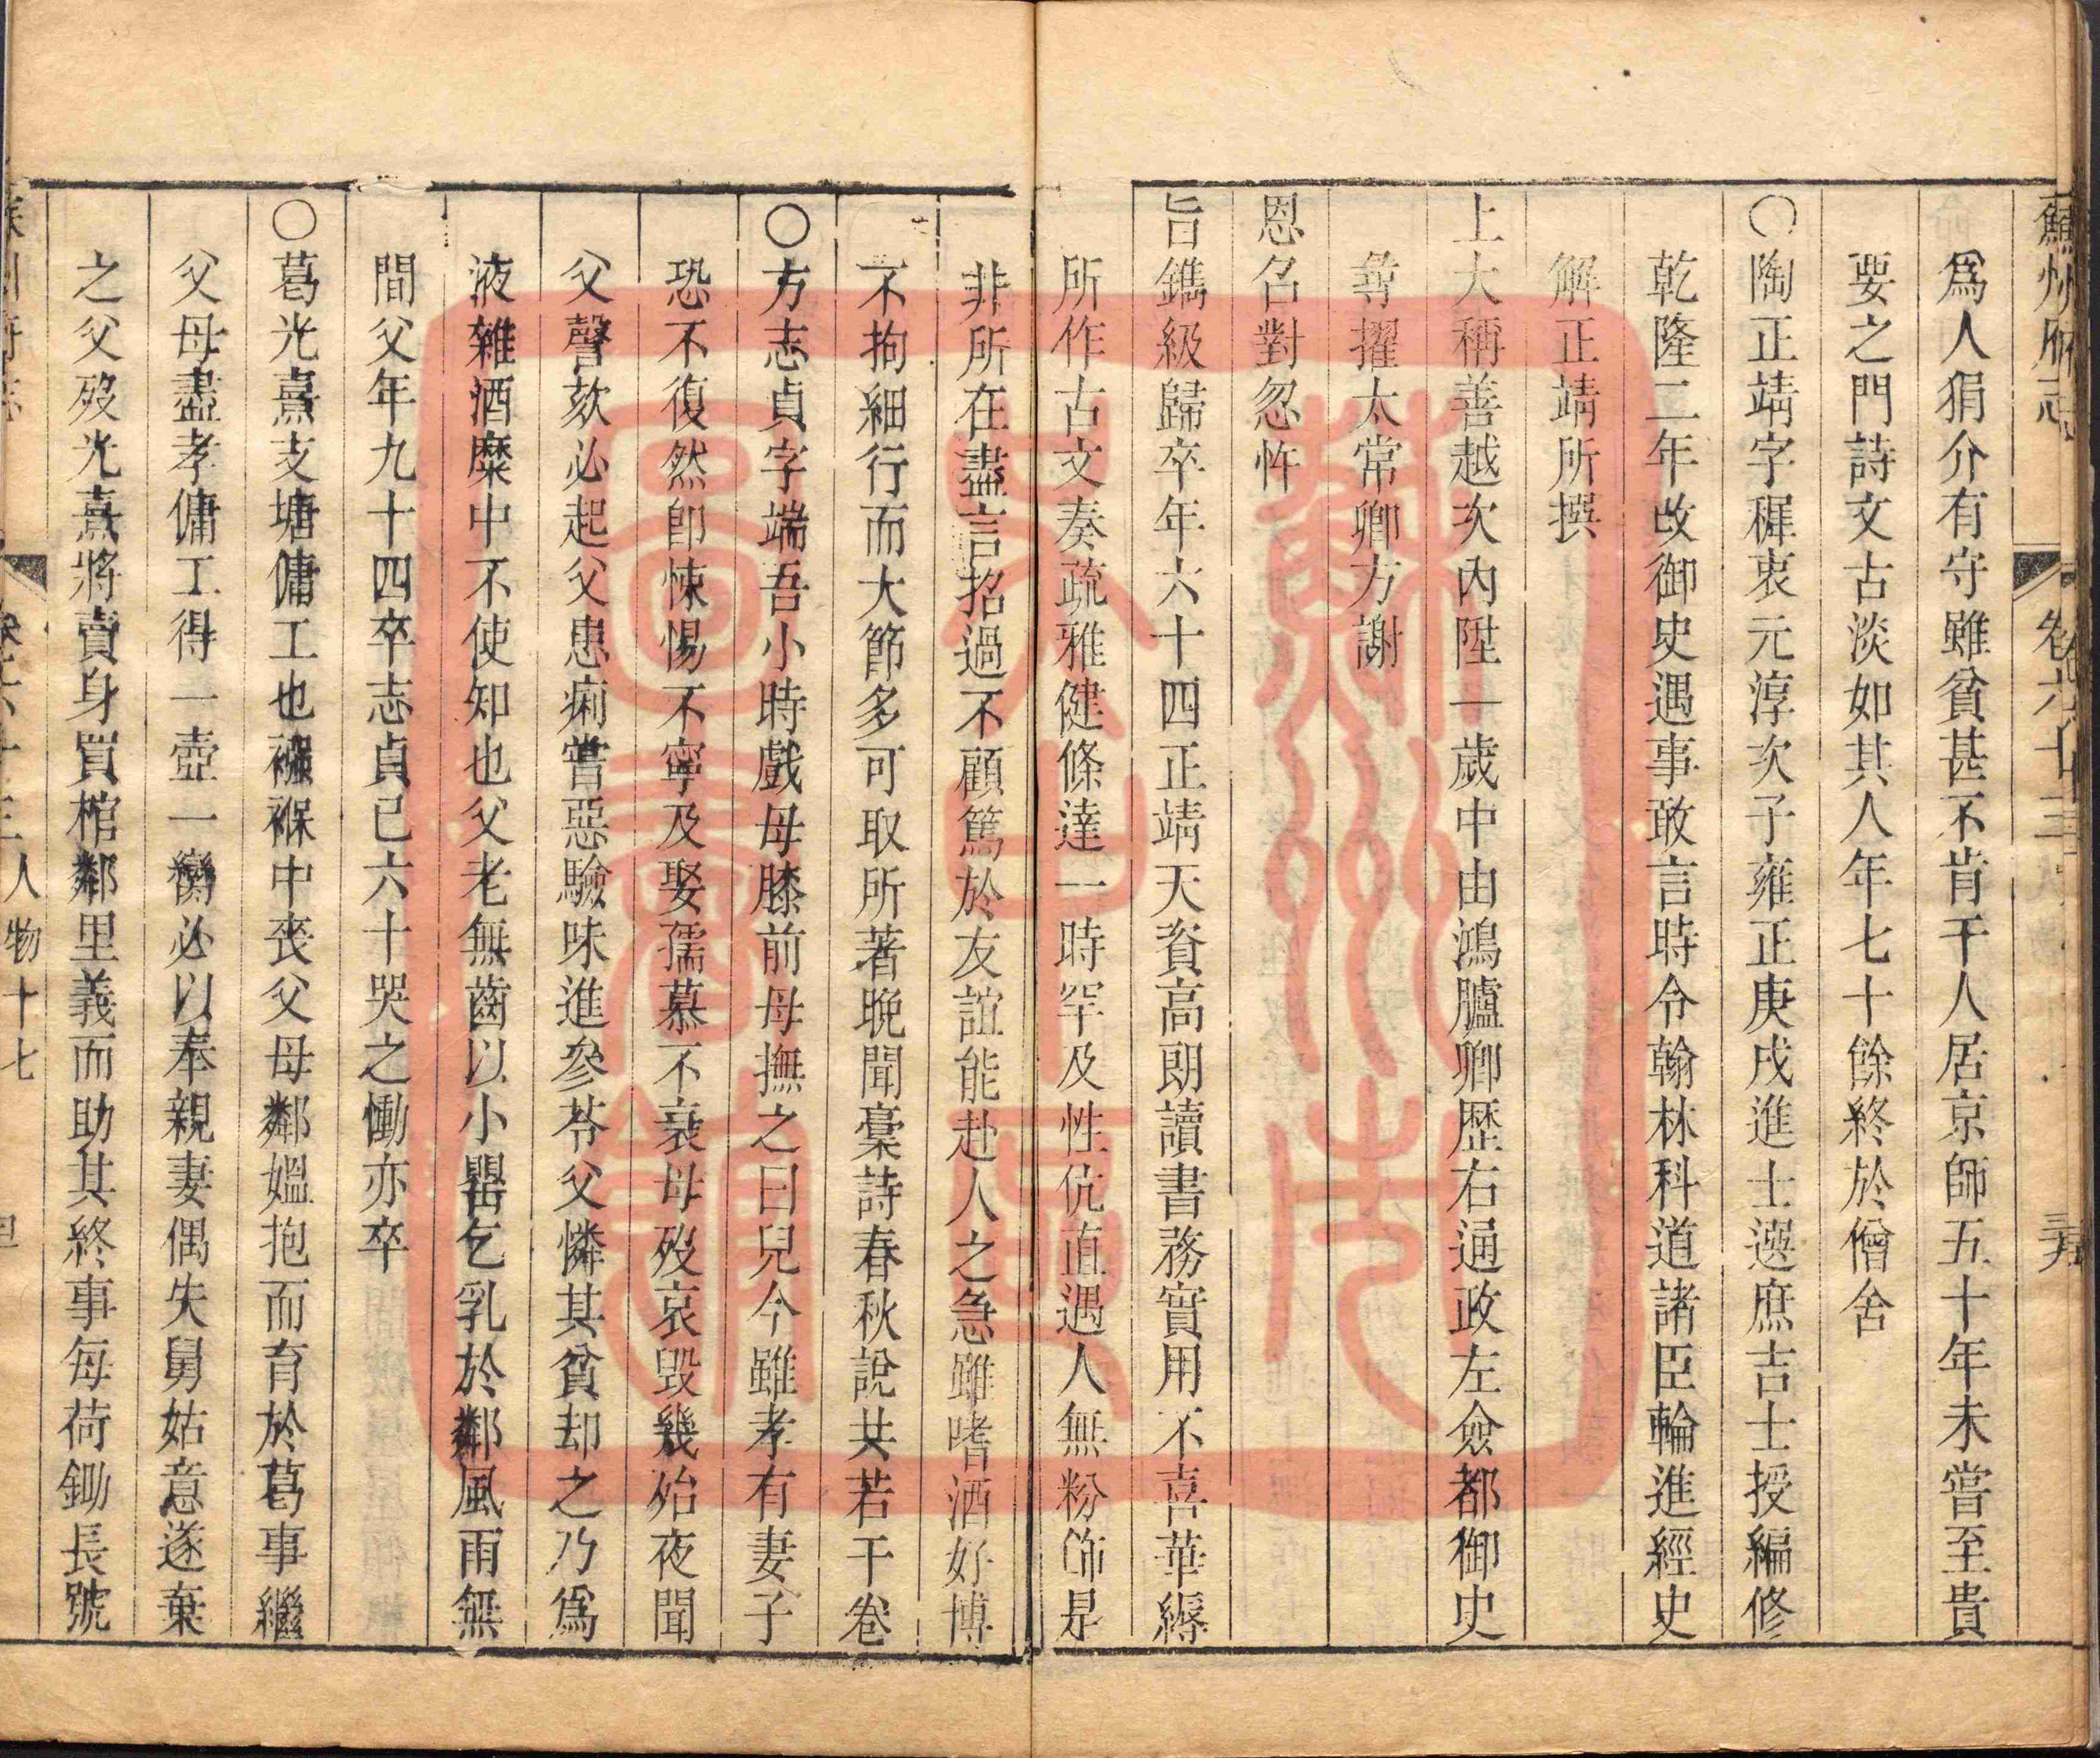 蘇州府志 卷六十三
爲人狷介有守雖貧甚不肯干人居京師五十年未嘗至貴
要之門詩文古淡如其人年七十餘終於僧舍
〇陶正靖字穉衷元淳次子雍正庚戌進士選庶吉士授編修
乾隆二年改御史遇事敢言時令翰林科道諸臣輪進經史
解正靖所撰
上大稱善越次內陞一歲中由鴻臚卿歷右通政左僉都御史
尋擢太常卿方謝
恩召對忽忤
旨鐫級歸卒年六十四正靖天資高朗讀書務實用不喜華縟
所作古文奏疏雅健條達一時罕及性伉直遇人無粉飾是
非所在盡言招過不顧篤於友誼能赴人之急雖嗜酒好博
不拘細行而大節多可取所著晚聞稾詩春秋說共若干卷
〇方志貞字端吾小時戲母膝前母撫之曰兒今雖孝有妻子
恐不復然卽悚惕不寧及娶孺慕不衰母歿哀毀幾殆夜聞
父謦欬必起父患痢嘗惡驗味進參苓父憐其貧却之乃爲
液雜酒糜中不使知也父老無齒以小罌乞乳於鄰風雨無
間父年九十四卒志貞已六十哭之慟亦卒
〇葛光熹支塘傭工也襁褓中喪父母鄰媼抱而育於葛事繼
父母盡孝傭工得一壺一臠必以奉親妻偶失舅姑意遂棄
之父歿光熹將賣身買棺鄰里義而助其終事每荷鋤長號
人物十七
蘇州市
圖書館